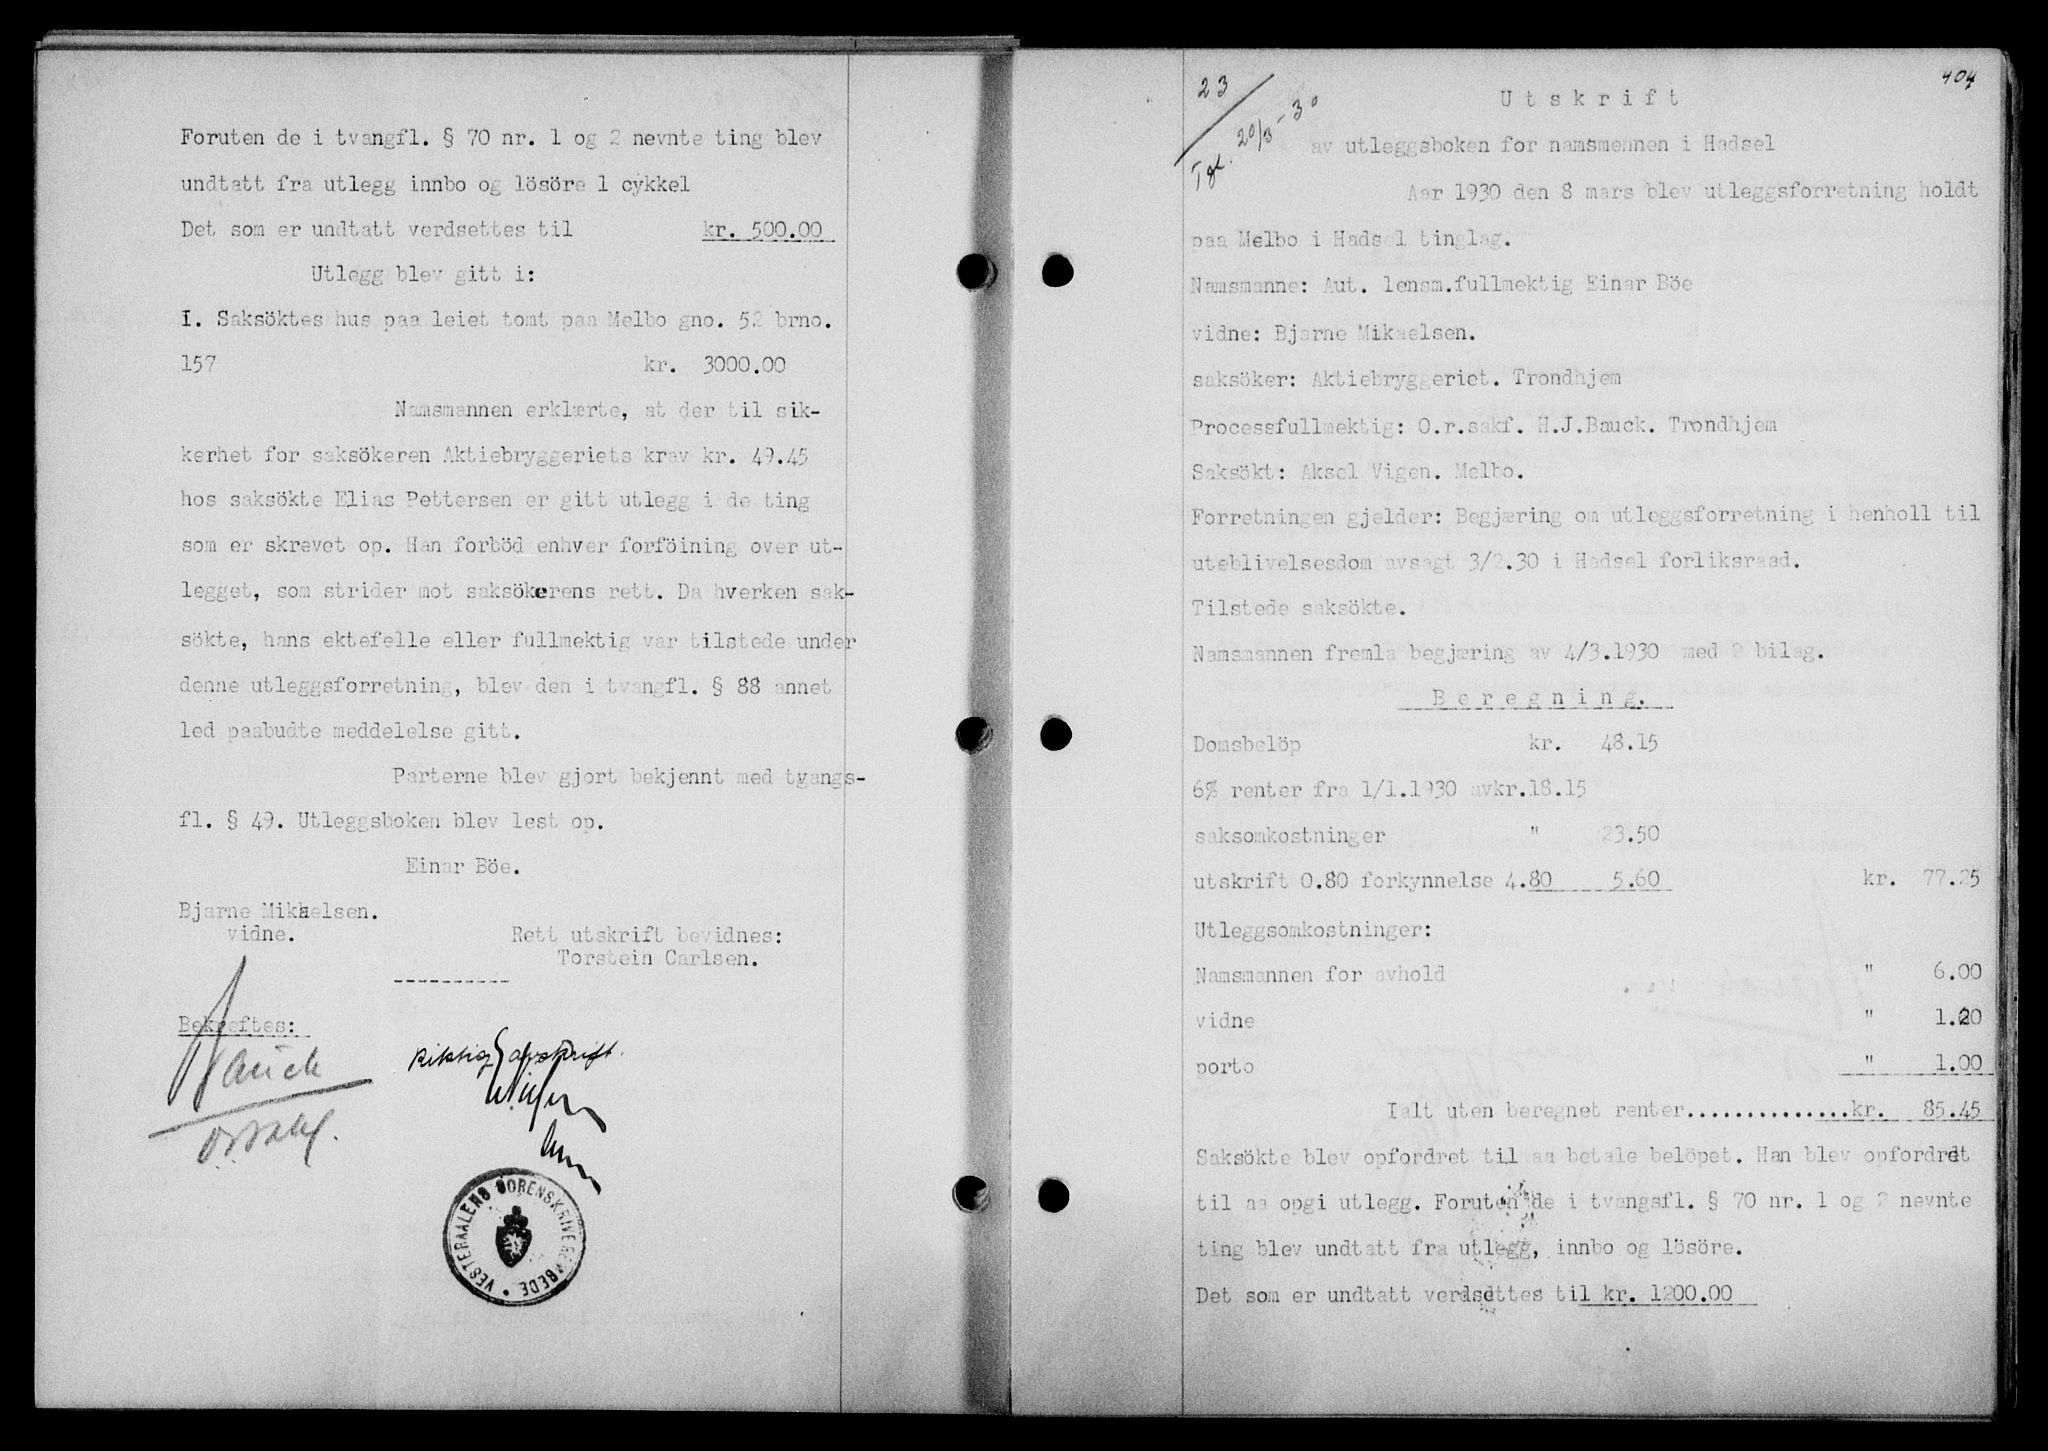 Foruten de i tvangfl. § 70 nr. 1 og 2 nevnte ting blev
undtatt fra utlegg innbo og lösöre 1 cykkel
Det som er undtatt verdsettes til kr. 500.00
Utlegg blev gitt i:
I. Saksöktes hus paa leiet tomt paa Melbo gno. 52 brno.
157 kr. 3000.00
Namsmannen erklærte, at der til sik-
kerhet for saksökeren Aktiebryggeriets krav kr. 49.45
hos saksökte Elias Pettersen er gitt utlegg i de ting
som er skrevet op. Han forböd enhver forföining over ut-
legget, som strider mot saksökerens rett. Da hverken sak-
sökte, hans ektefelle eller fullmektig var tilstede under
denne utleggsforretning, blev den i tvangfl. § 88 annet
led paabudte meddelelse gitt.
Parterne blev gjort bekjennt med tgangs-
fl. § 49. Utleggsboken blev lest op.
Einar Böe.
Bjarne Mikaelsen.
vidne.
Rett utskrift bevidnes:
Torstein Carlsen.
----------
Bekreftes:
Bauck
Riktig avskrift.
VESTERAALENS SORENSKRIVEREMBEDE
404
23
Tgl. 20/3-30
Utskrift
av utleggsboken for namsmennen i Hadsel
Aar 1930 den 8 mars blev utleggsforretning holdt
paa Melbo i Hadsel tinglag.
Namsmanne: Aut. lensm.fullmektig Einar Böe
vidne: Bjarne Mikaelsen.
saksöker: Aktiebryggeriet. Trondhjem
Processfullmektig: O.r.sakf. H.J.Bauck. Trondhjem
Saksökt: Aksel Vigen. Melbo.
Forretningen gjelder: Begjæring om utleggsforretning i henholl til
uteblivelsesdom avsagt 3/2.30 i Hadsel forliksraad.
Tilstede saksökte.
Namsmannen fremla begjæring av 4/3.1930 med 2 bilag.
Beregning.
Domsbelöp kr. 48.15
6% renter fra 1/1.1930 avkr.18.15
saksomkostninger " 23.50
utskrift 0.80 forkynnelse 4.80 5.60 kr. 77.25
Utleggsomkostninger:
Namsmannen for avhold " 6.00
vidne " 1.20
porto " 1.00
Ialt uten beregnet renter...............kr. 85.45
Saksökte blev opfordret til aa betale belöpet. Han blev opfordret
til aa opgi utlegg. Foruten de i tvangsfl. § 70 nr. 1 og 2 nevnte
ting blev undtatt fra utlegg, innbo og lösöre.
Det som er undtatt verdsettes til kr. 1200.00